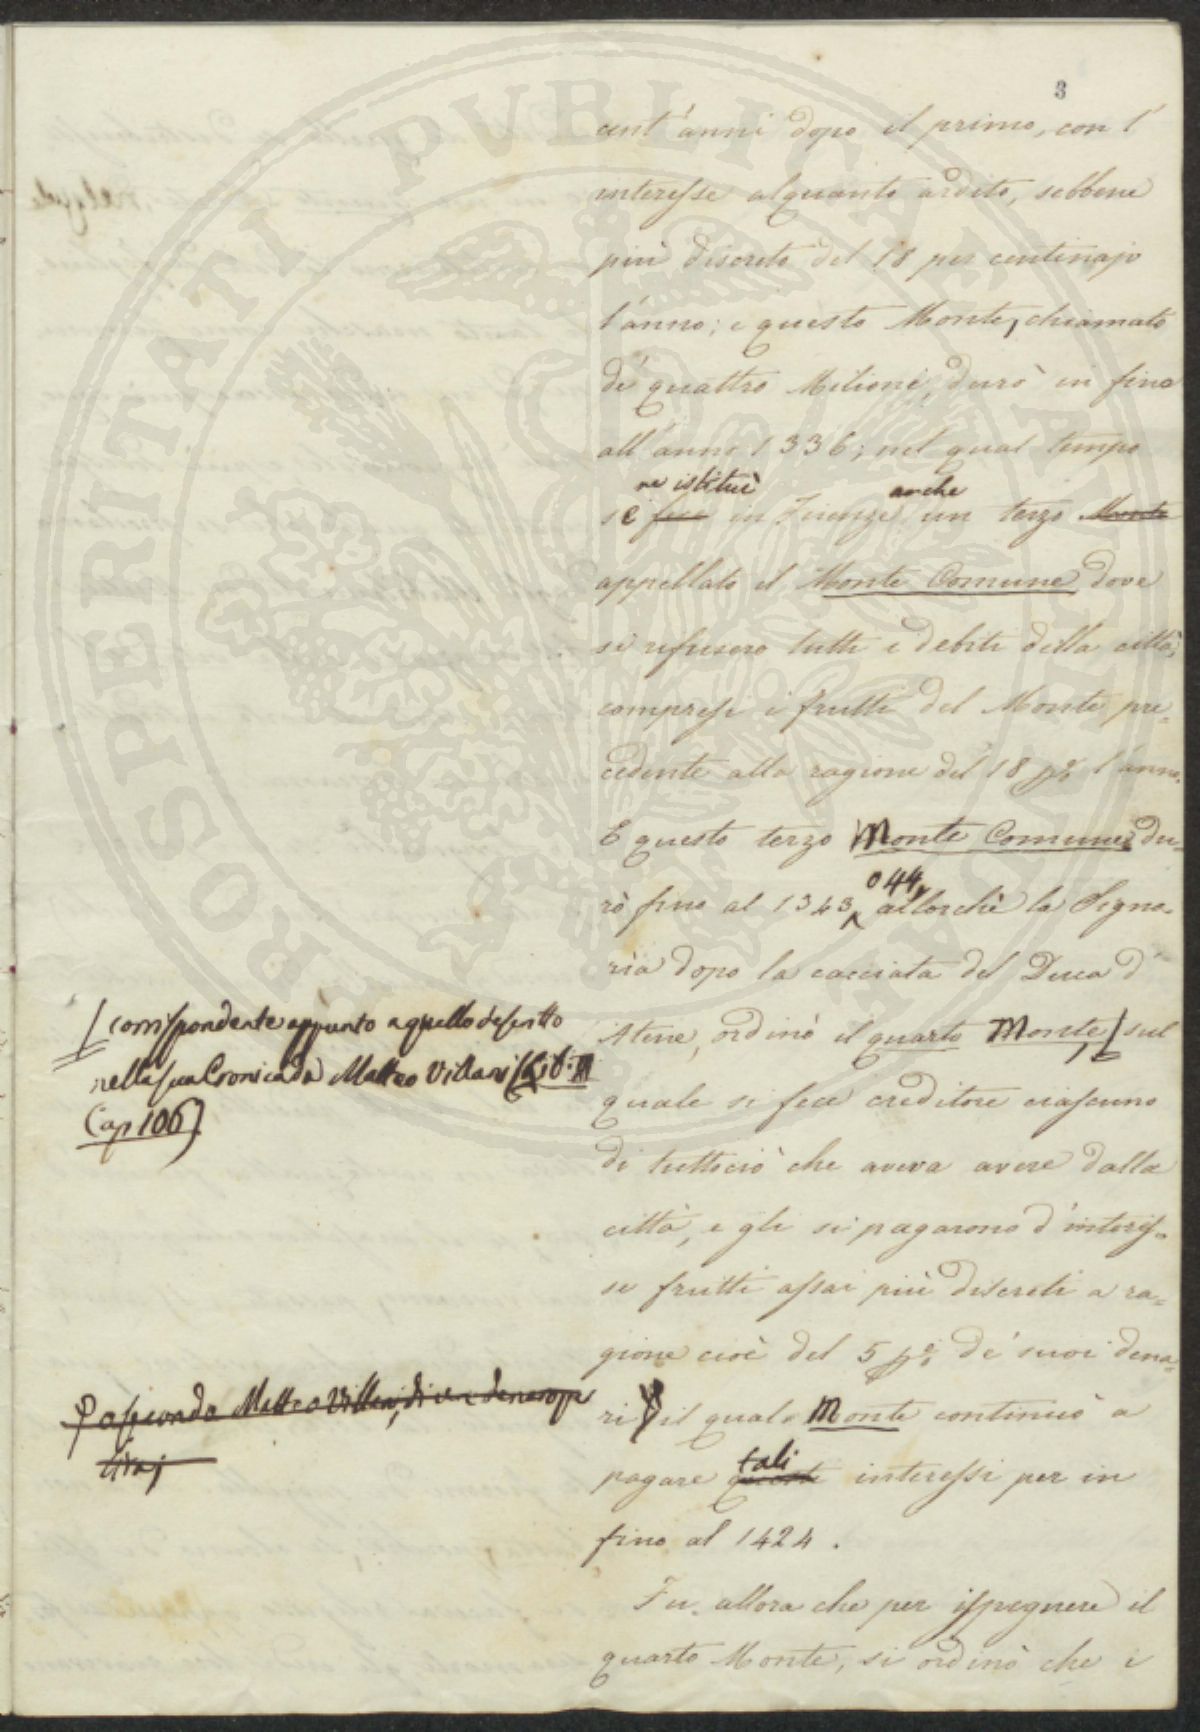 3
cent'anni dopo il primo, con l'
interesse alquanto ardito, sebbene
più discreto del 18 per centinajo
l'anno; e questo Monte, chiamato
de' quattro Milioni, durò in fino
all'anno 1336; nel qual tempo
ne istituì anche
se fece in Firenze un terzo Monte
appellato il Monte Comune dove
si rifusero tutti i debiti della città,
compresi i frutti del Monte pre-
cedente alla ragione del 18 p% l'anno.
E questo terzo Monte Comune du-
o 44,
rò fino al 1343 allorchè la Signo-
ria dopo la cacciata del Duca d'
Atene, ordinò il quarto Monte, sul
quale si fece creditore ciascuno
di tuttociò che aveva avere dalla
città, e gli si pagarono d'interes-
se frutti assai più discreti a ra-
gione cioè del 5 p% de' suoi dena-
ri il quale Monte continuò a
tali
pagare questi interessi per in
fino al 1424.
Fu allora che per ispegnere il
quarto Monte, si ordinò che i
nel quale
corrispondente appunto a quello descritto
nella sua Cronica da Matteo Villani (Lib. III
Cap 106)
o secondo Matteo Villani, di un denaro per
lira;
PROSPERITATI PUBLICAE AUGENDAE